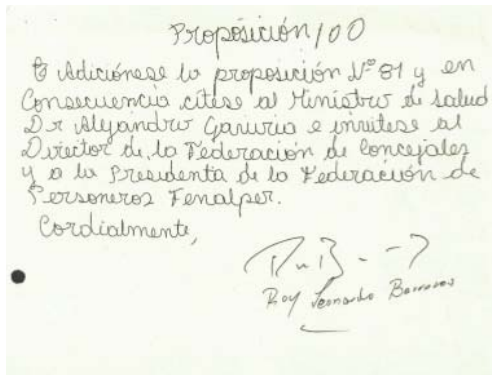 Proposición 100
Adiciónese la proposición Nº 81 y en
Consecuencia cítese al Ministro de Salud
Dr Alejandro Gaviria e invitese al
Director de la Federación de Concejales
y a la Presidenta de la Federación de
Personeros Fenalper.
Cordialmente,
Roy Leonardo Barreras